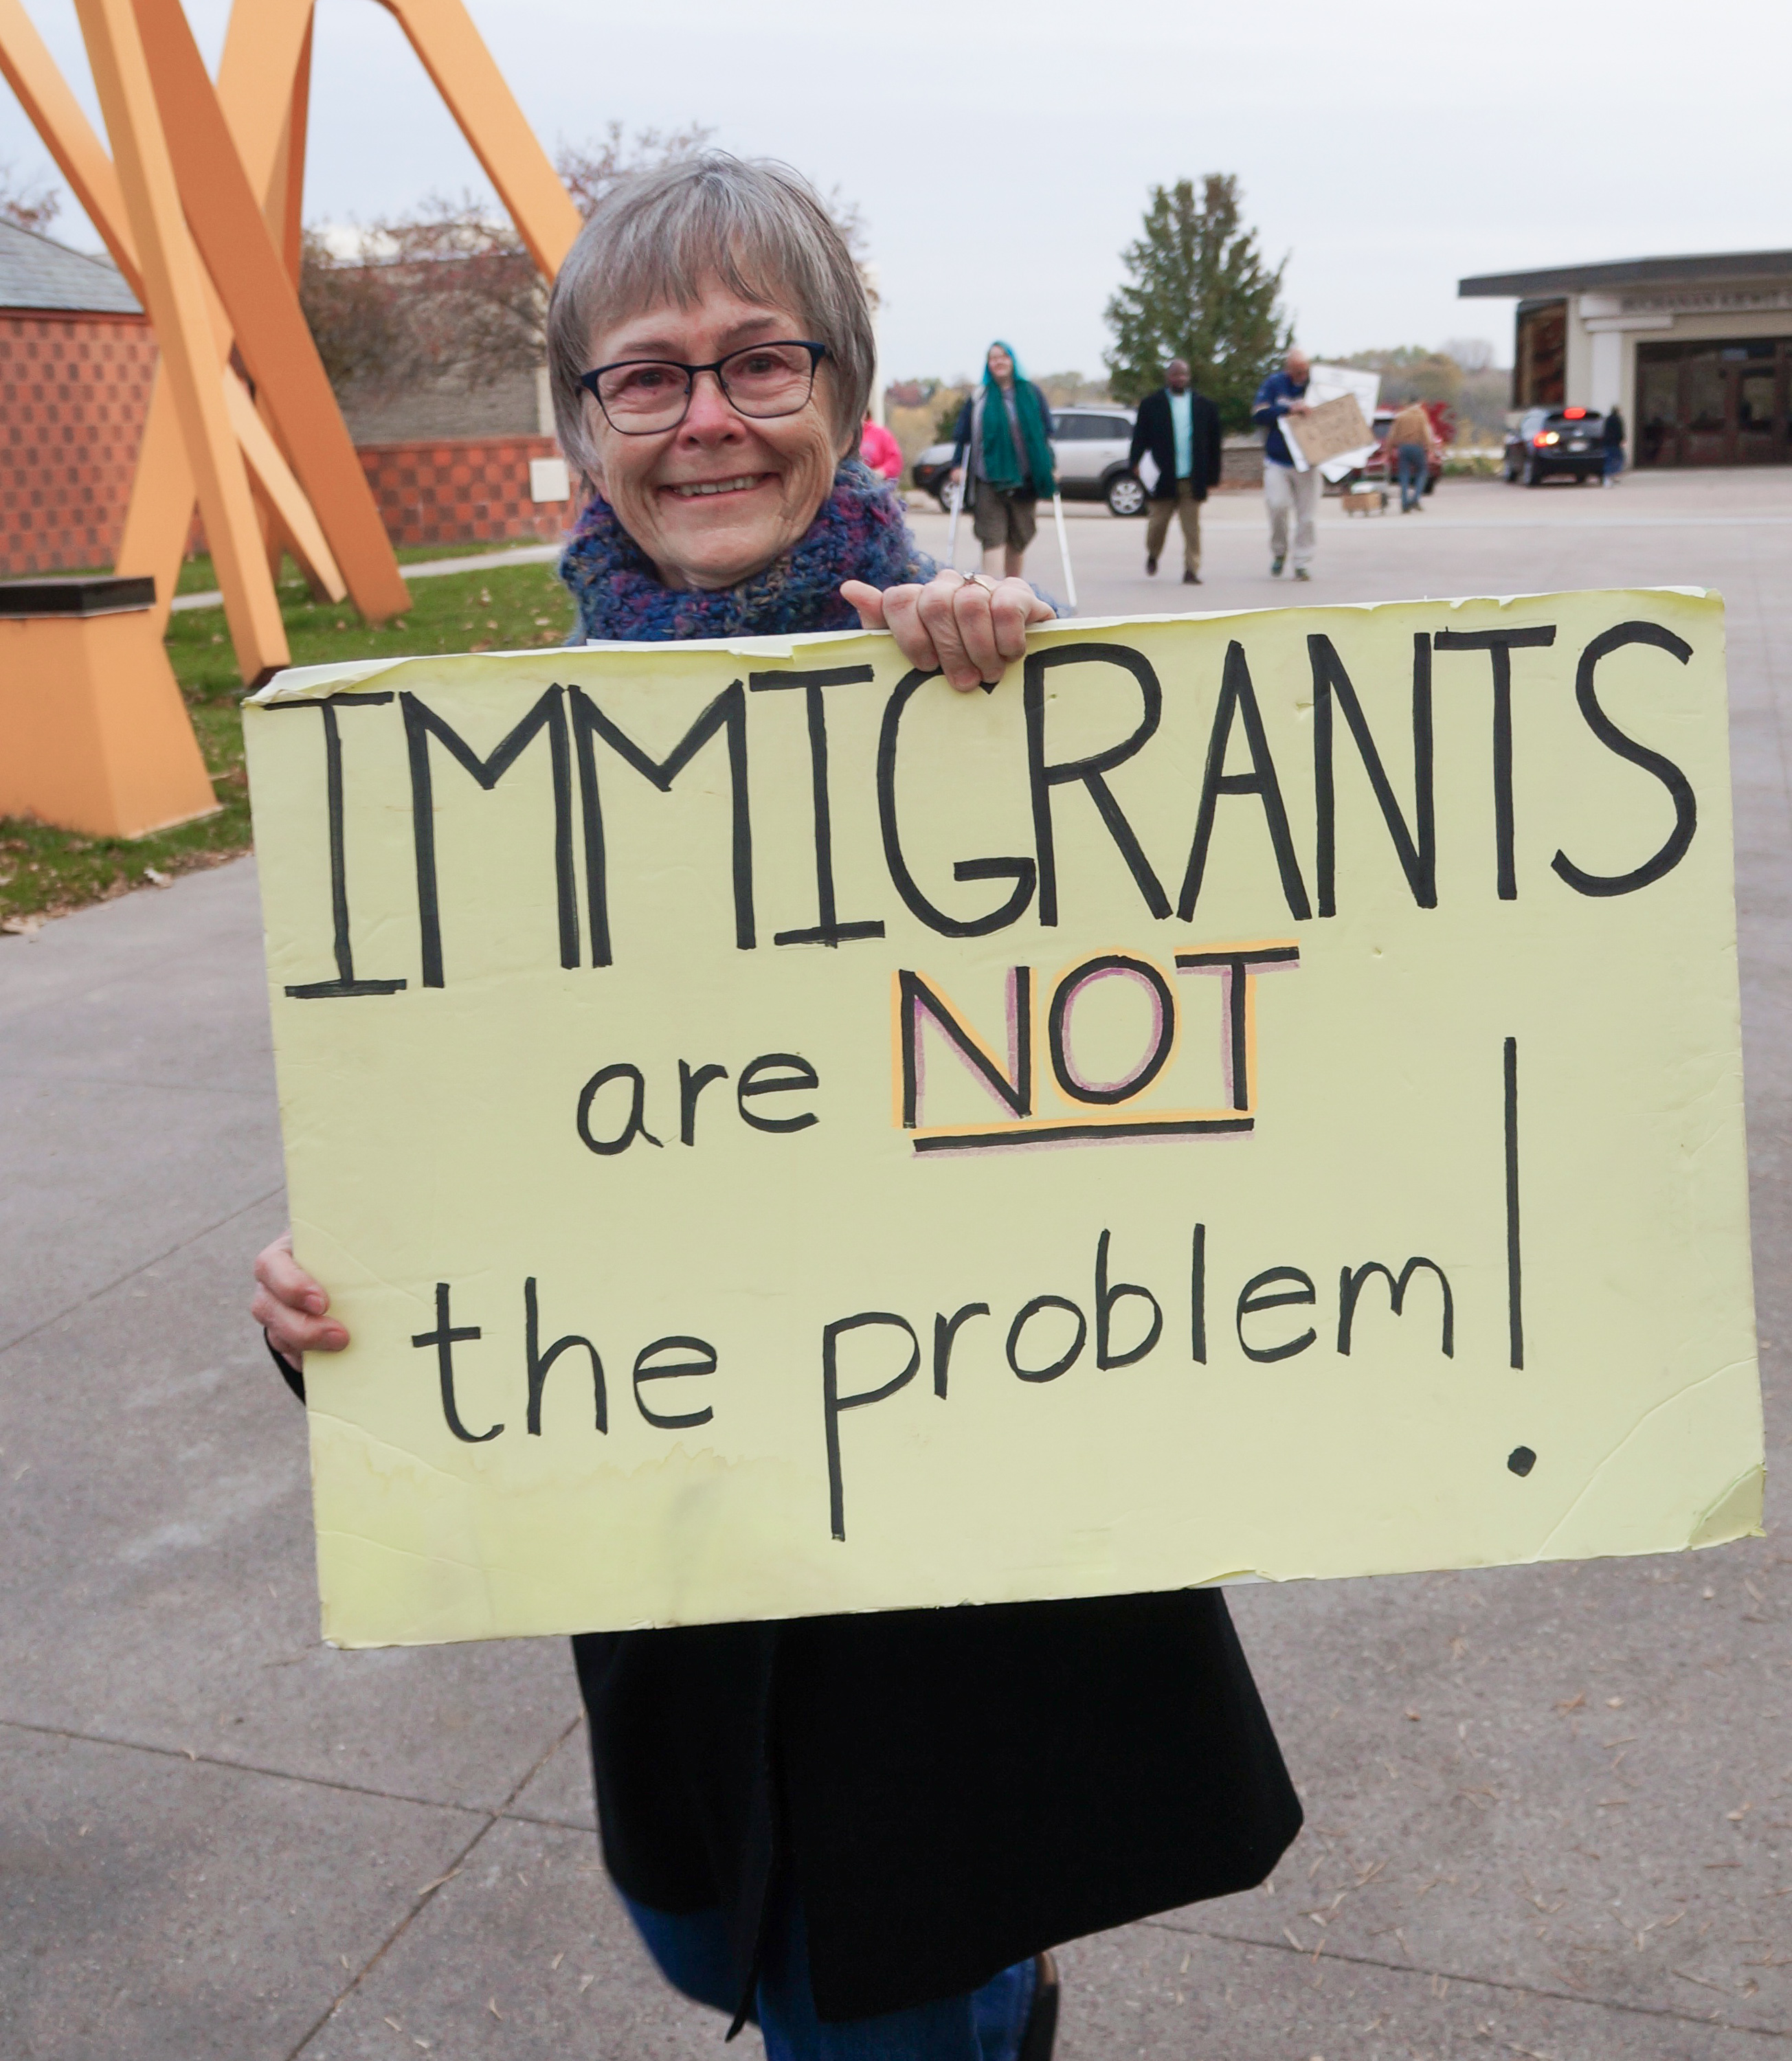 IMMIGRANTS
are NOT
the problem!